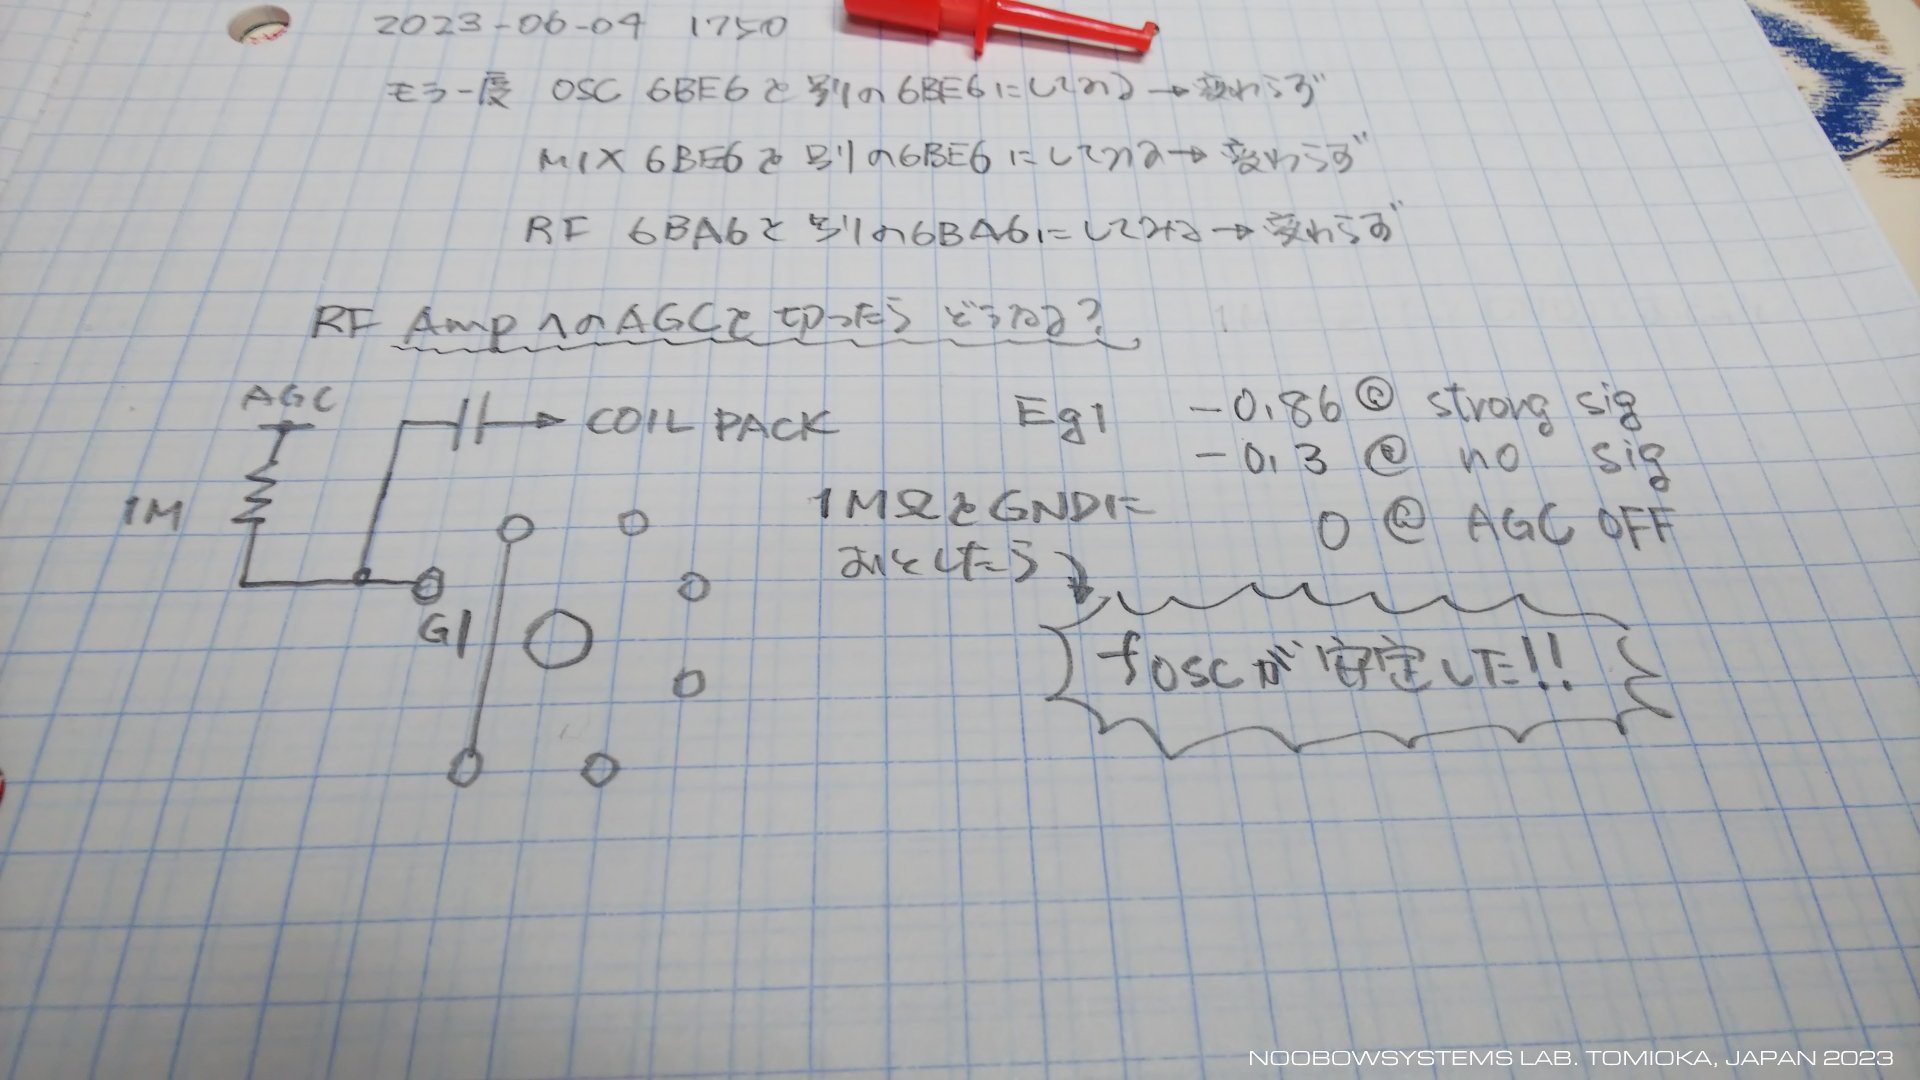 2023-06-04 1750
もう一度 OSC 6BE6を別の6BE6にしてみる→変わらず
MIX 6BE6を別の6BE6にしてみる→変わらず
RF 6BA6を別の6BA6にしてみる→変わらず
RF AmpへのAGCを切ったらどうなる?
AGC
COIL PACK
1M
G1
Eg1 -0.86 @ strong sig
-0.3 @ no sig
0 @ AGC OFF
1MΩをGNDに
おとしたら
fOSCが安定した!!
NOOBOWSYSTEMS LAB. TOMIOKA, JAPAN 2023